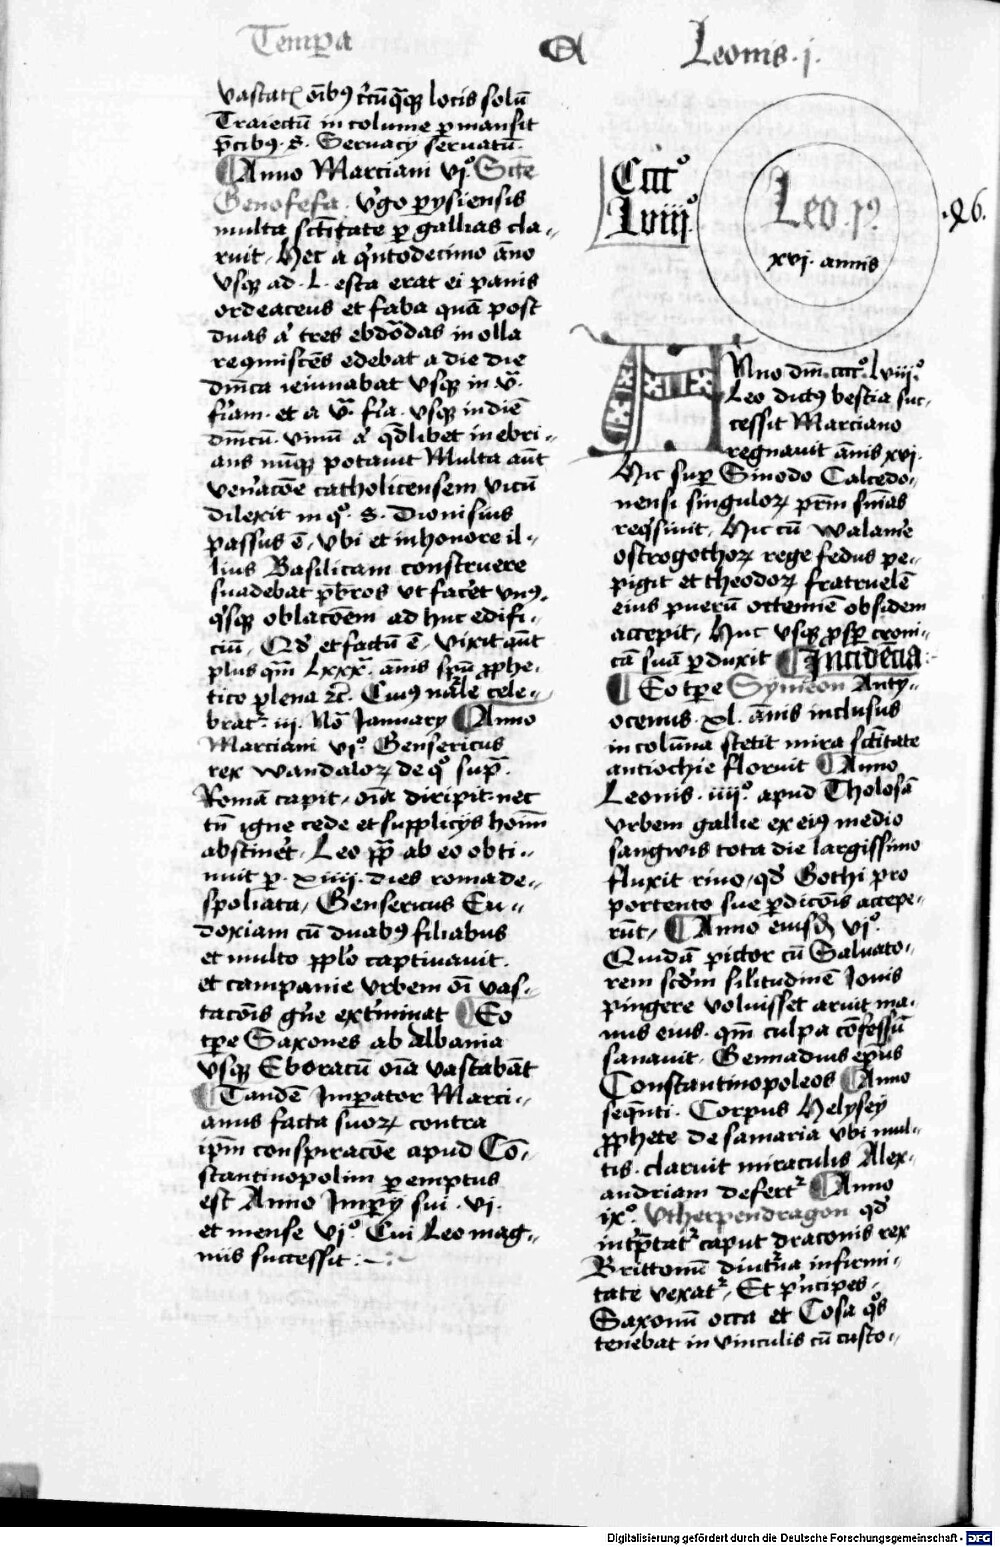 Temp̲a
Leonis · j ·
vastat᷒ oi᷑bꝰ c᷑cūq̲ꝫ locis solū
Traiectū incolume p̲mansit
p̄cibꝰ · S · Servacij servatū ·
¶ Anno Marciani vjͦ · Scte̅
Genofefa · v᷑go p̲ysiensis
multa sctītate p̲ gallias cla-
ruit / Hec a q᷑ntodecimo āno
vsqꝫ ad · L · esca erat ei panis
ordeaceus et faba quā post
duas a᷑ tres ebdōdas in olla
requiscēs edebat a die die
dm̄ca ieiunabat vsqꝫ in v᷑ ·
fīam · et a v᷑ · fīa · vsqꝫ in diē
dm̄cū · vinū a᷑ qd̄libet inebri-
ans nūqꝫ potavit Multa aūt
ven᷑acōe catholicensem vicū
dilexit in qͦ · S · Dionisius
passus ē / vbi et in honore il-
lius Basilicam construere
suadebat p̄bros vt fac᷑et vnꝰ-
q᷑sqꝫ oblacōem ad huc edifi-
ciū / Qd̄ et factū ē / vixit aūt
plus qm̄ Lxxx · ānis spū ꝓphe-
tico plena ꝛc̄ · Cuiꝰ nāle cele-
brat᷑ iij · No̅ January ¶ Anno
Marciani vjͦ · Gensericus
rex wandaloꝝ de qͦ sup̄ ·
Romā capit / oīa diripit · nec
tn̄ igne cede et supplicijs hoīm
abstinet / Leo pp̄ ab eo obti-
nuit p̲ · xiiij · dies roma de-
spoliata / Gensericus Eu-
doxiam cū duabꝰ filiabus
et multo pp̄lo captivavit ·
et campanie vrbem oī vas-
tacōis gn̄e ext᷑minat ¶ Eo
tp̄e Saxones ab Albania
vsqꝫ Eboracū oīa vastabāt
¶ Tandē Imp̲ator Marci-
anus facta suoꝝ contra
ip̄m conspiracōe apud Cō-
stantinopolim p̲emptus
est Anno Imp̲ij sui · vj ·
et mense vjͦ · Cui Leo mag-
nus successit :~
Cccc ͦ
Lviijͦ
Leo · jꝰ ·
xvj · annis
Anno dn̄i · ccccͦ · lviijͦ ·
Leo dictꝰ bestia suc-
cessit Marciano
regnavit ānis xvj ·
Hic sup̲ Sinodo Calcedo-
nensi singuloꝝ pr̄m sn̄ias
req᷑sivit / Hic cū walam᷑e
ostrogothoꝝ rege fedus pe-
pigit et theodoꝝ fratruelē
eius pueru̅ octennē obsidem
accepit / Huc vsqꝫ ꝓsp̲ croni-
cā suā p̲duxit ¶ Incidēcia :
¶ Eo tp̄e Symeon Anty-
ocenus · xl · ānis inclusus
in colūna stetit mira sctītate
antiochie floruit ¶ Anno
Leonis · iiijͦ · apud Tholosā
vrbem gallie ex eiꝰ medio
sangwis tota die largissimo
fluxit rivo / qd̄ Gothi pro
portento sue p̲dicōis accepe-
rūt / ¶ Anno eiusd̄ vjͦ ·
Quidā pictor cū Salvato-
rem scd̄m sil᷑itudinē Jovis
pingere voluisset aruit ma-
nus eius · qm̄ culpa cōfessū
sanavit · Gennadius ep̄us
Constantinopoleos ¶ Anno
seqn̄ti · Corpus Helysey
ꝓphete de samaria vbi mul-
tis · claruit miraculis Alex-
andriam defert᷑ ¶ Anno
ixͦ · Vtherpendragon qd̄
int᷑p̲tat᷑ caput draconis rex
Brittonū diut᷑na infirmi-
tate vexat᷑ / Et p᷑ncipes
Saxonū octa et Cosa qͦs
tenebat in vinculis cū custo-
Digitalisierung gefördert durch die Deutsche Forschungsgemeinschaft - DFG